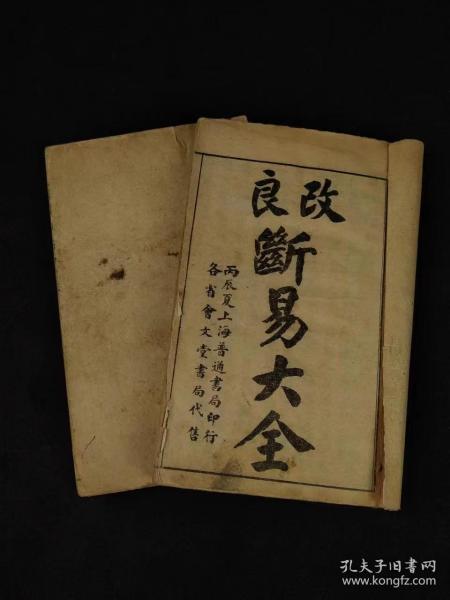 改良
斷易大全
丙辰夏上海普通書局印行
各省會文堂書局代售
孔夫子旧书网
www.kongfz.com